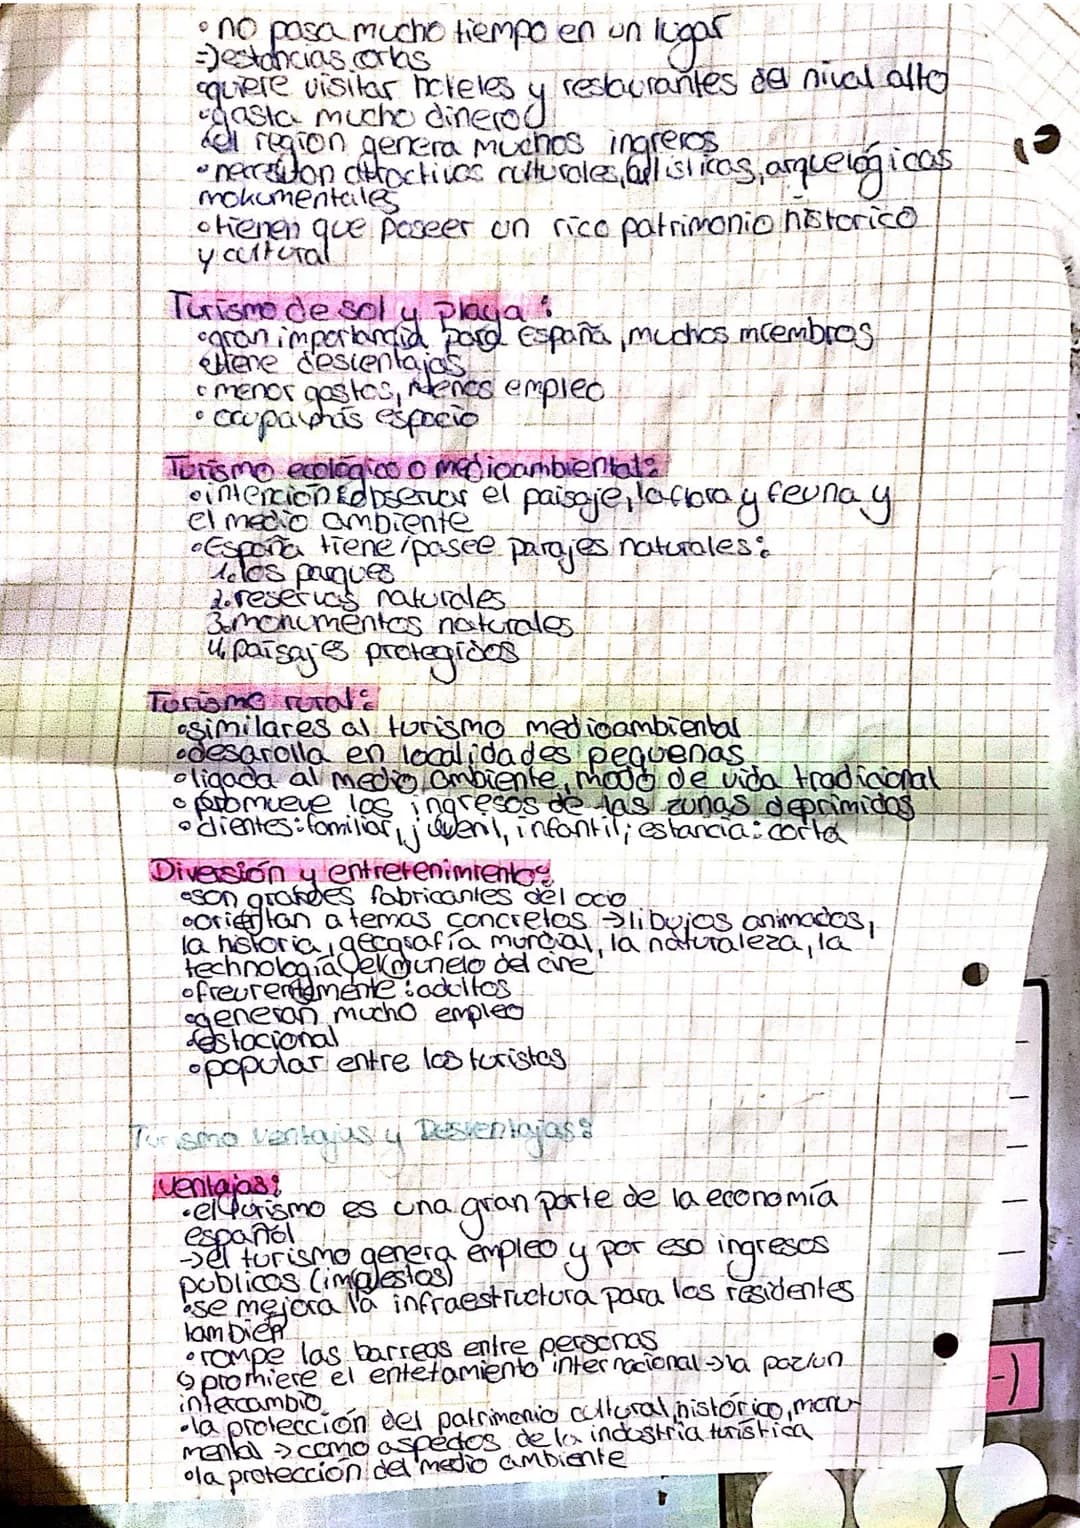 • no pasa mucho tiempo en un lugar
⇒ estancias cortas
• quiere visitar hoteles y restaurantes del nival alto
• gasta mucho dinero
región genera muchos ingreros
• necesitan attractivos culturales, artísticas, arquelógicas
monumentales
• tienen que poseer un rico patrimonio historico
y cultural
Turismo de sol y playa:
• gran importancia para España, muchos miembros
• tiene desventajas
• menor gastos, menos empleo
• ocupa más espacio
Turismo ecológico o medioambiental:
• intención observar el paisaje, la flora y feuna y
el medio ambiente
• España tiene/posee parajes naturales:
1. los parques
2. reservas naturales
3. monumentos naturales
4. paisajes protegidos
Turismo rural:
• similares al turismo medioambiental
• desarolla en localidades pequenas
• ligada al medio ambiente, modo de vida tradicional
• promueve los ingresos de las zunas deprimidas
• clientes: familiar, juvenil, infantil; estancia: corta
Diversión y entretenimiento:
• son grandes fabricantes del ocio
• orientan a temas concretos → libujos animados,
la historia, geografía mundial, la naturaleza, la
technología el mundo del cine
• frecuentemente: adultos
• generan mucho empleo
estacional
• popular entre los turistas
Turismo ventajas y Desventajas:
ventajas:
• el turismo es una gran parte de la economía
español
→ el turismo genera empleo y por eso ingresos
públicos (impuestos)
• se mejora la infraestructura para los residentes
tambien
• rompe las barreas entre personas
promiere el entetamiento internacional → la paz/un
intercambio
• la protección del patrimonio cultural, histórico, monu-
mental → como aspectos de la industria turística
• la protección del medio ambiente
:-)